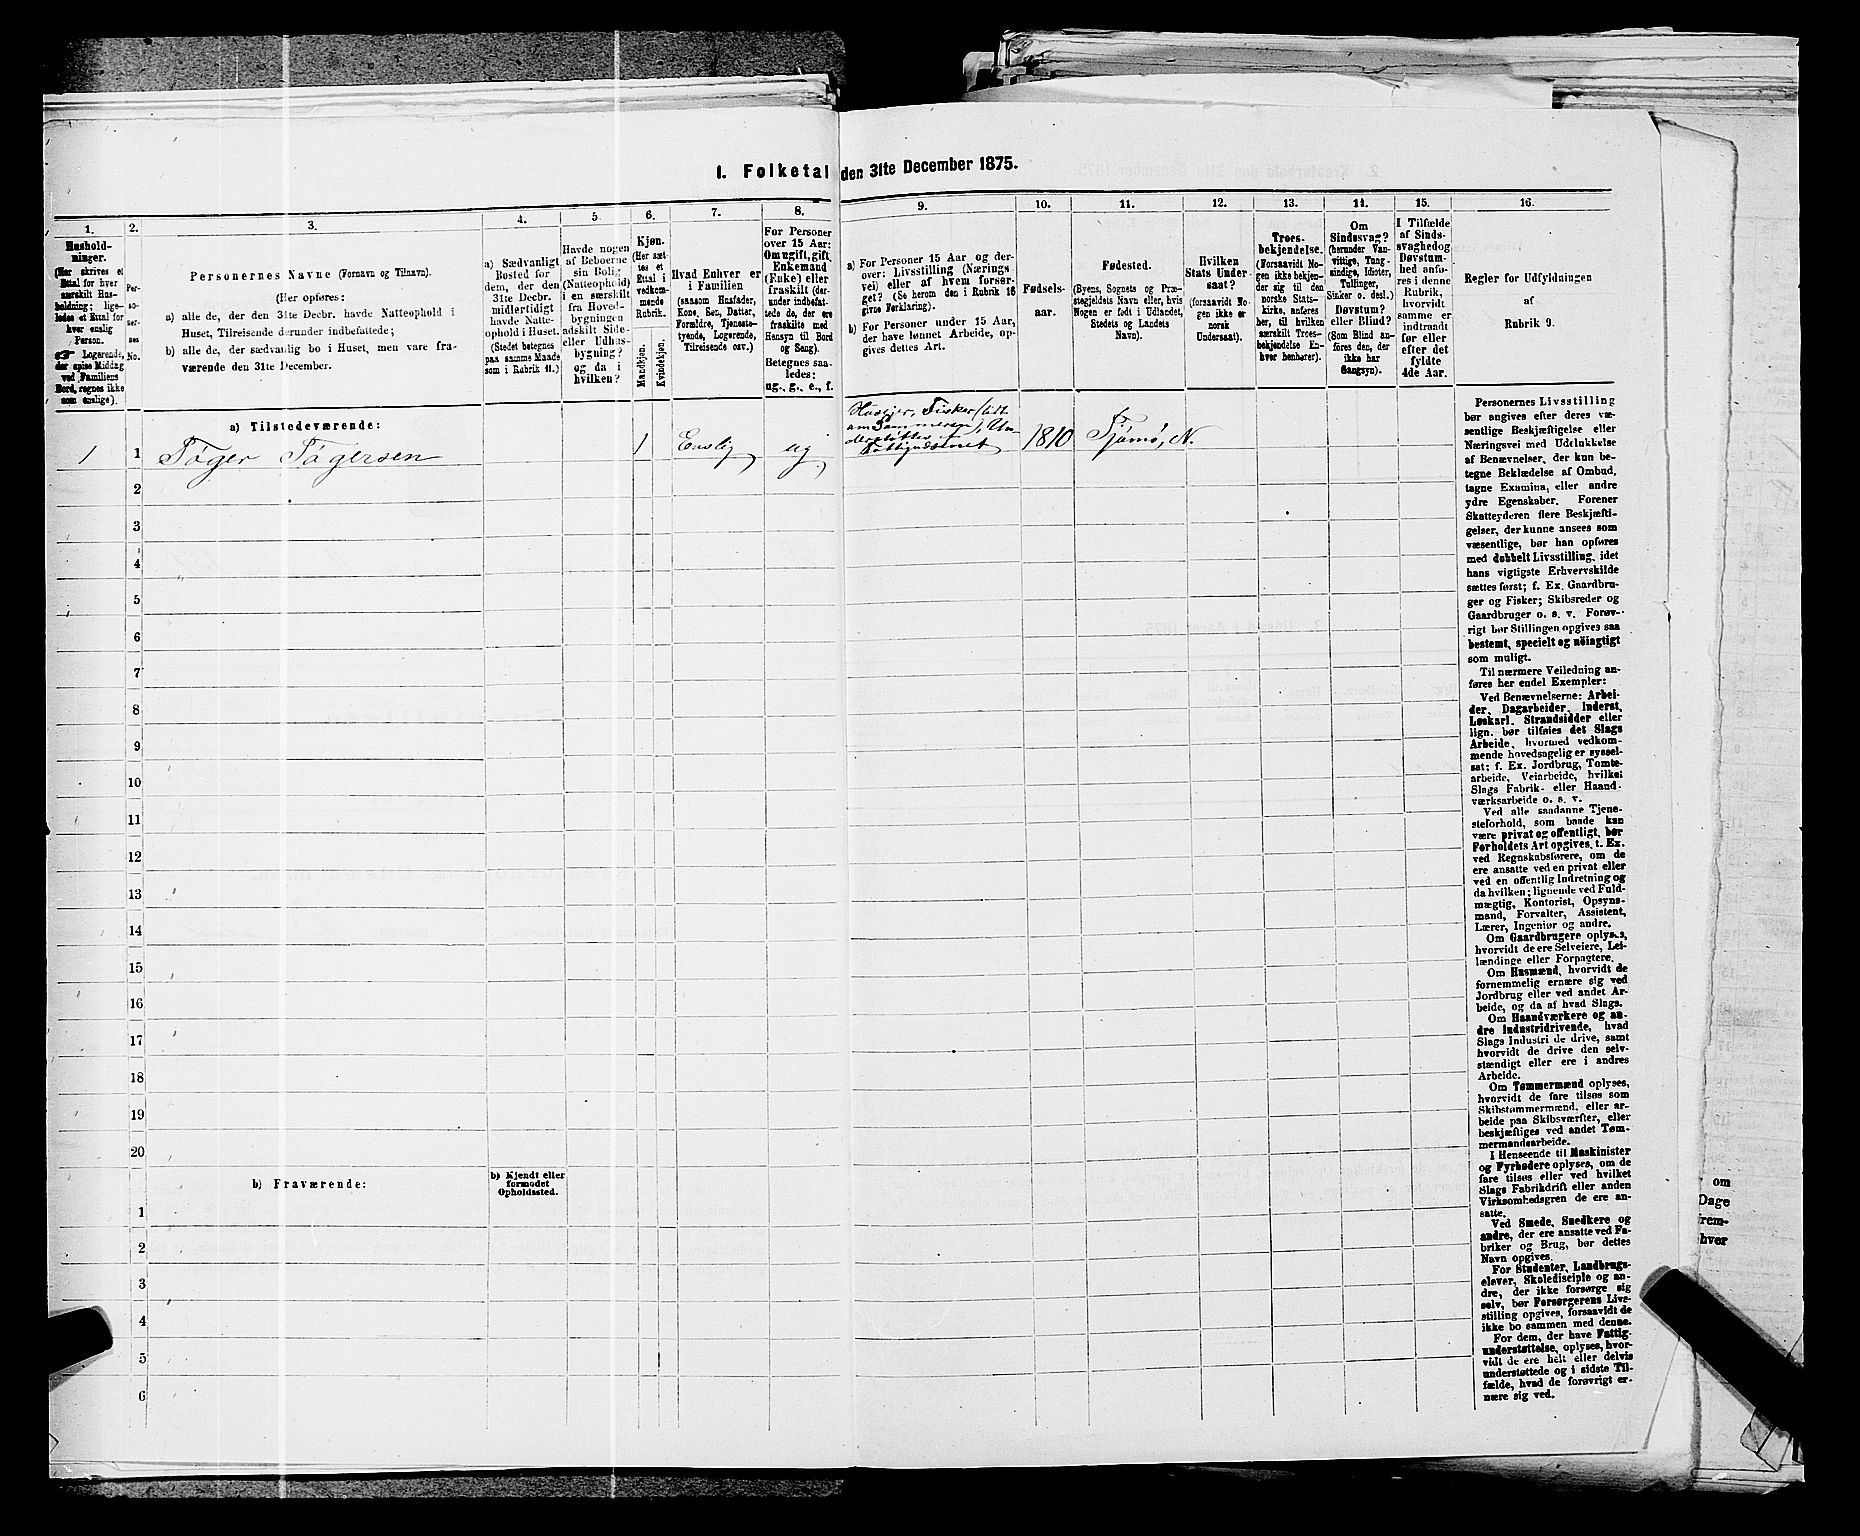 1. Folketal den 31te December 1875.
1.
2.
3.
4.
5.
6.
7.
8.
9.
10.
11.
12.
13.
14.
15.
16.
Hushold-
ninger.
(Her skrives et
Ettal for hver
særskilt Hus-
holdning; lige-
ledes et Ettal for
hver enslig
Person.
☞ Logerende,
der spise Middag
ved Familiens
Bord, regnes ikke
som enslige).
Per-
so-
ner-
nes
No.
Personernes Navne (Fornavn og Tilnavn).
(Her opføres:
a) alle de, der den 31te Decbr. havde Natteophold i
Huset, Tilreisende derunder indbefattede;
b) alle de, der sædvanlig bo i Huset, men vare fra-
værende den 31te December.
a) Sædvanligt
Bosted for
dem, der den
31te Decbr.
midlertidigt
havde Natte-
ophold i Huset.
(Stedet betegnes
paa samme Maade
som i Rubrik 11.)
Havde nogen
af Beboerne
sin Bolig
(Natteophold)
i en særskilt
fra Hoved-
bygningen
adskilt Side-
eller Udhus-
bygning?
og da i
hvilken?
Kjøn.
(Her sæt-
tes et
Ettal i
vedkom-
mende
Rubrik.
Mandkjøn.
Kvindekjøn.
Hvad Enhver er
i Familien
(saasom Husfader,
Kone, Søn, Datter,
Forældre, Tjeneste-
tyende, Logerende,
Tilreisende osv.).
For Personer
over 15 Aar:
Om ugift, gift,
Enkemand
(Enke) eller
fraskilt (der-
under indbefat-
tede de, der ere
fraskilte med
Hensyn til Bord
og Seng).
Betegnes saa-
ledes:
ug., g., e., f.
a) For Personer 15 Aar og der-
over: Livsstilling (Nærings
vei) eller af hvem forsør-
get? (Se herom den i Rubrik 16
givne Forklaring).
b) For Personer under 15 Aar,
der have lønnet Arbeide, op-
gives dettes Art.
Fødsels-
aar.
Fødested.
(Byens, Sognets og Præ-
stegjeldets Navn eller, hvis
Nogen er født i Udlandet,
Stedets og Landets
Navn).
Hvilken
Stats Under-
saat?
(forsaavidt No-
gen ikke er
norsk
Undersaat).
Troes-
bekjendelse.
(Forsaavidt No-
gen ikke bekjen-
der sig til den
norske Stats-
kirke, anføres
her, til hvilken
særskilt Troes-
bekjendelse En-
hver henhører).
Om
Sindssvag?
(herunder Van-
vittige, Tung-
sindige, Idioter,
Tullinger,
Sinker o. desl.)
Døvstum?
eller Blind?
(Som Blind an-
føres den, der
ikke har
Gangsyn).
I Tilfælde
af Sinds-
svaghed og
Døvstum-
hed anfø-
res i denne
Rubrik,
hvorvidt
samme er
indtraadt
før eller
efter det
fyldte
4de Aar.
Regler for Udfyldningen
af
Rubrik 9.
a) Tilstedeværende:
1
1
Tøger Tøgersen
1
Enslig
ug
Huseier, Fisker (lidt
om Sommeren), Un-
derstøttes af
Fattigvæsenet
1810
Tjømø, N.
2
3
4
5
6
7
8
9
10
11
12
13
14
15
16
17
18
19
20
b) Fraværende:
b) Kjendt eller
formodet
Opholdssted.
1
2
3
4
5
6
Personernes Livsstilling
bør angives efter deres væ-
sentlige Beskjæftigelse eller
Næringsvei med Udelukkelse
af Benævnelser, der kun be-
tegne Beklædelse af Ombud,
tagne Examina, eller andre
ydre Egenskaber. Forener
Skatteyderen flere Beskjæfti-
gelser, der kunne ansees som
væsentlige, bør han opføres
med dobbelt Livsstilling, idet
hans vigtigste Erhvervskilde
sættes først; f. Ex. Gaardbru-
ger og Fisker; Skibsreder og
Gaardbruger o. s. v. Forøv-
rigt bør Stillingen opgives saa
bestemt, specielt og nøiagtigt
som muligt.
Til nærmere Veiledning an-
føres her endel Exempler:
Ved Benævnelserne: Arbei-
der, Dagarbeider, Inderst,
Løskarl, Strandsidder eller
lign. bør tilføies det Slags
Arbeide, hvormed vedkom-
mende hovedsagelig er syssel-
sat; f. Ex. Jordbrug, Tomte-
arbeide, Veiarbeide, hvilket
Slags Fabrik- eller Haand-
værksarbeide o. s. v.
Ved alle saadanne Tjene-
steforhold, som baade kan
være privat og offentligt, bør
Forholdets Art opgives, t. Ex.
ved Regnskabsførere, om de
ere ansatte ved en privat eller
ved en offentlig Indretning og
da hvilken; lignende ved Fuld-
mægtig, Kontorist, Opsyns-
mand, Forvalter, Assistent,
Lærer, Ingeniør og andre.
Om Gaardbrugere oplyses,
hvorvidt de ere Selveiere, Lei-
lændinge eller Forpagtere.
Om Husmænd, hvorvidt de
fornemmelig ernære sig ved
Jordbrug eller ved andet Ar-
beide, og da af hvad Slags.
Om Haandværkere og an-
dre Industridrivende, hvad
Slags Industri de drive, samt
hvorvidt de drive den selv-
stændigt eller ere i andres
Arbeide.
Om Tømmermænd oplyses,
hvorvidt de fare tilsøs som
Skibstømmermænd, eller ar-
beide paa Skibsværfter, eller
beskjæftiges ved andet Tøm-
mermandsarbeide.
I Henseende til Maskinister
og Fyrbødere oplyses, om de
fare tilsøs eller ved hvilket
Slags Fabrikdrift eller anden
Virksomhedsgren de ere an-
satte.
Ved Smede, Snedkere og
andre, der ere ansatte ved Fa-
briker og Brug, bør dettes
Navn opgives.
For Studenter, Landbrugs-
elever, Skoledisciple og an-
dre, der ikke forsørge sig
selv, bør Forsørgerens Live-
stilling opgives, forsaavidt de
ikke bo sammen med denne.
For dem, der have Fattig-
understøttelse, oplyses, hvor-
vidt de ere helt eller delvis
understøttede og i sidste Til-
fælde, hvad de forøvrigt er-
nære sig ved.
om
Dage
frem-
hver